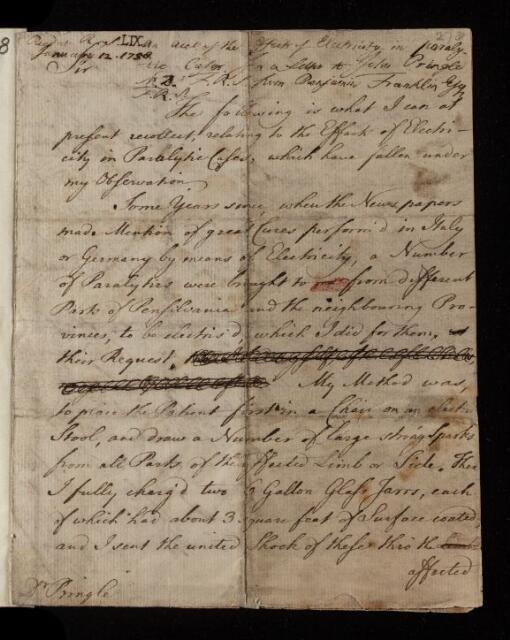 8
278
Read
January 12, 1758
LIX. An Acct of the Effects of Electricity in paraly-
Sir
tic Cases. In a Letter to John Pringle
M.D. F.R.S. from Benjamin Franklin Esq
F.R.S.
The following is what I can at
present recollect, relating to the Effects of Electri-
city in Paralytic Cases, which have fallen under
my Observation.
Some Years since, when the News papers
made Mention of great Cures perform'd in Italy
or Germany by means of Electricity, a Number
of Paralytics were brought to me from different
Parts of Pensilvania and the neighbouring Pro-
vinces, to be electris'd, which I did for them, at
their Request.
My Method was,
to place the Patient first in a Chair on an electric
Stool, and draw a Number of large strong Sparks
from all Parts of the affected Limb or Side. Then
I fully charg'd two 6 Gallon Glass Jarrs, each
of which had about 3 square feet of Surface coated,
and I sent the united Shock of these thro' the
affected
Dr Pringle